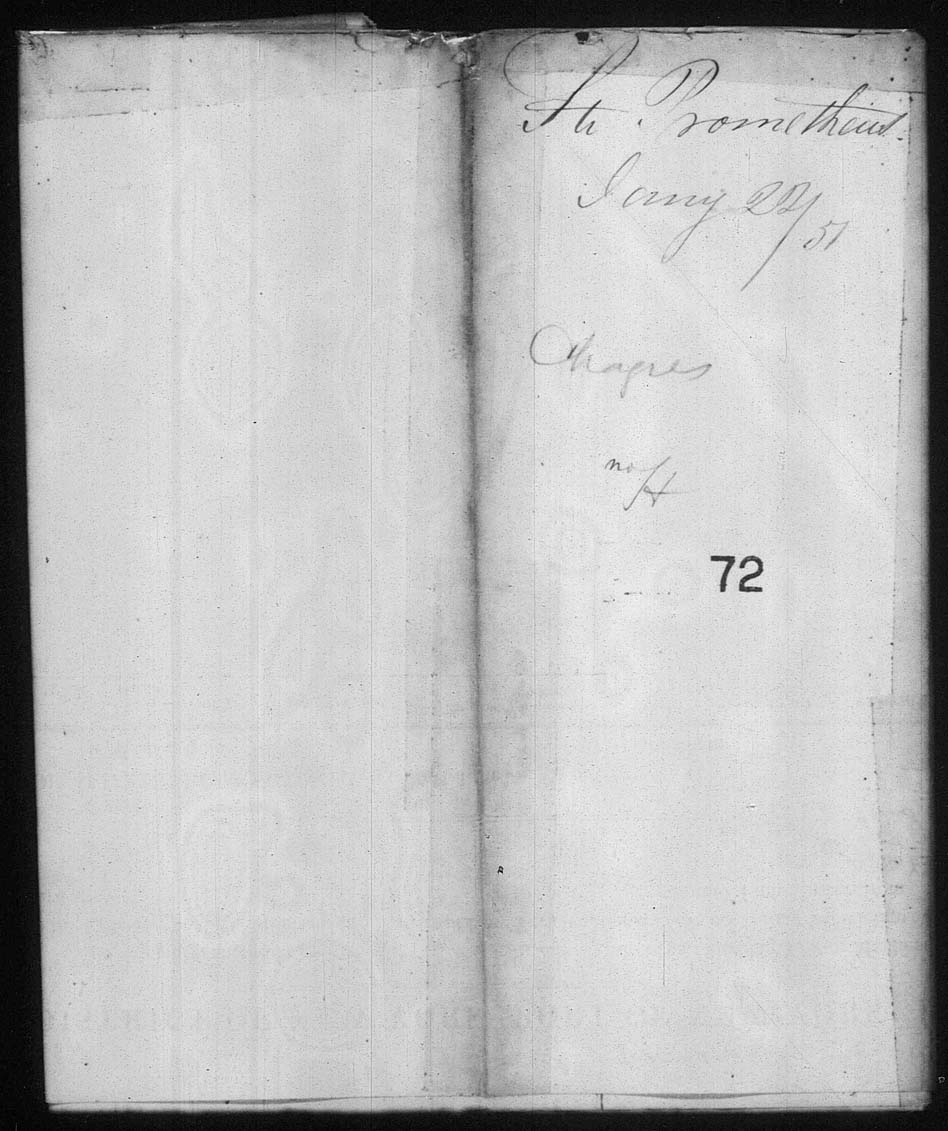 Str Prometheus
Jany 22/51
Chagres
no H
72